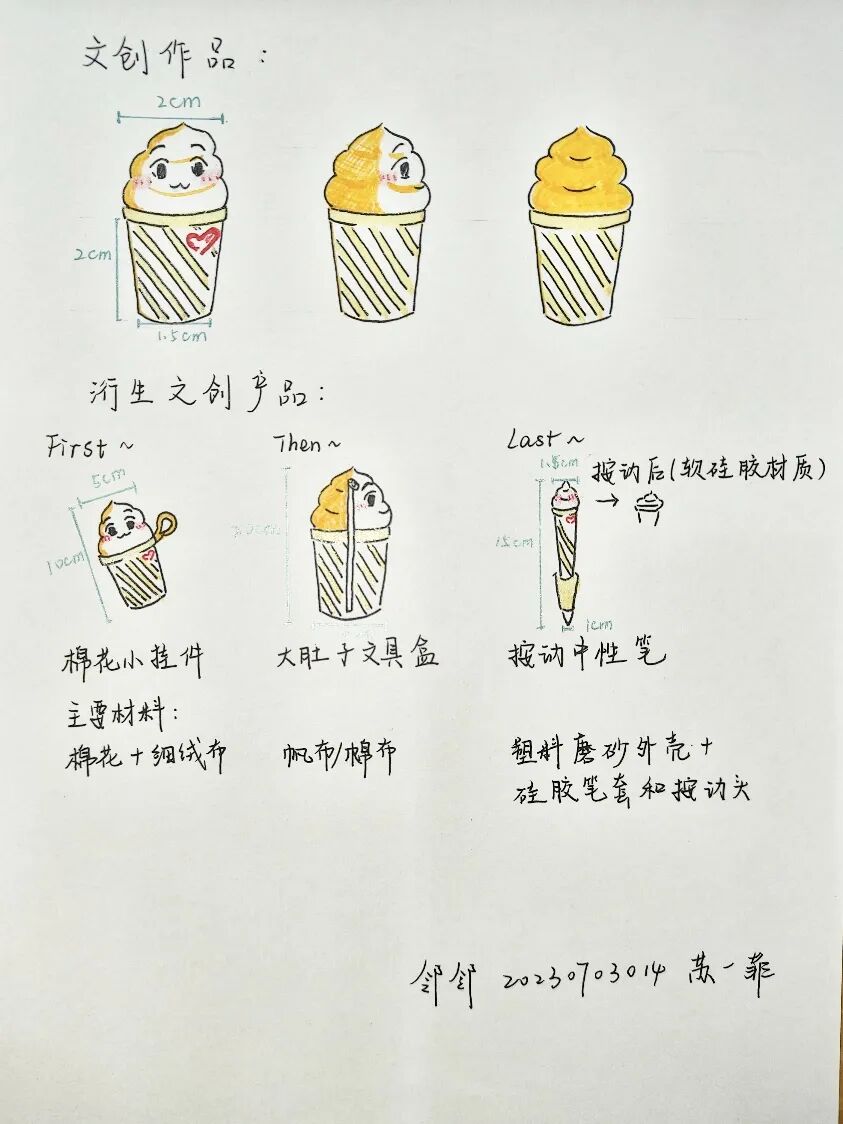 文创作品：
2cm
2cm
1.5cm
衍生文创产品：
First~
Then~
Last~
5cm
10cm
1.5cm
按动后(软硅胶材质)
15cm
1cm
棉花小挂件
大肚子文具盒
按动中性笔
主要材料：
棉花+细绒布
帆布/棉布
塑料磨砂外壳+
硅胶笔套和按动头
邻邻 20230703014 苏一菲